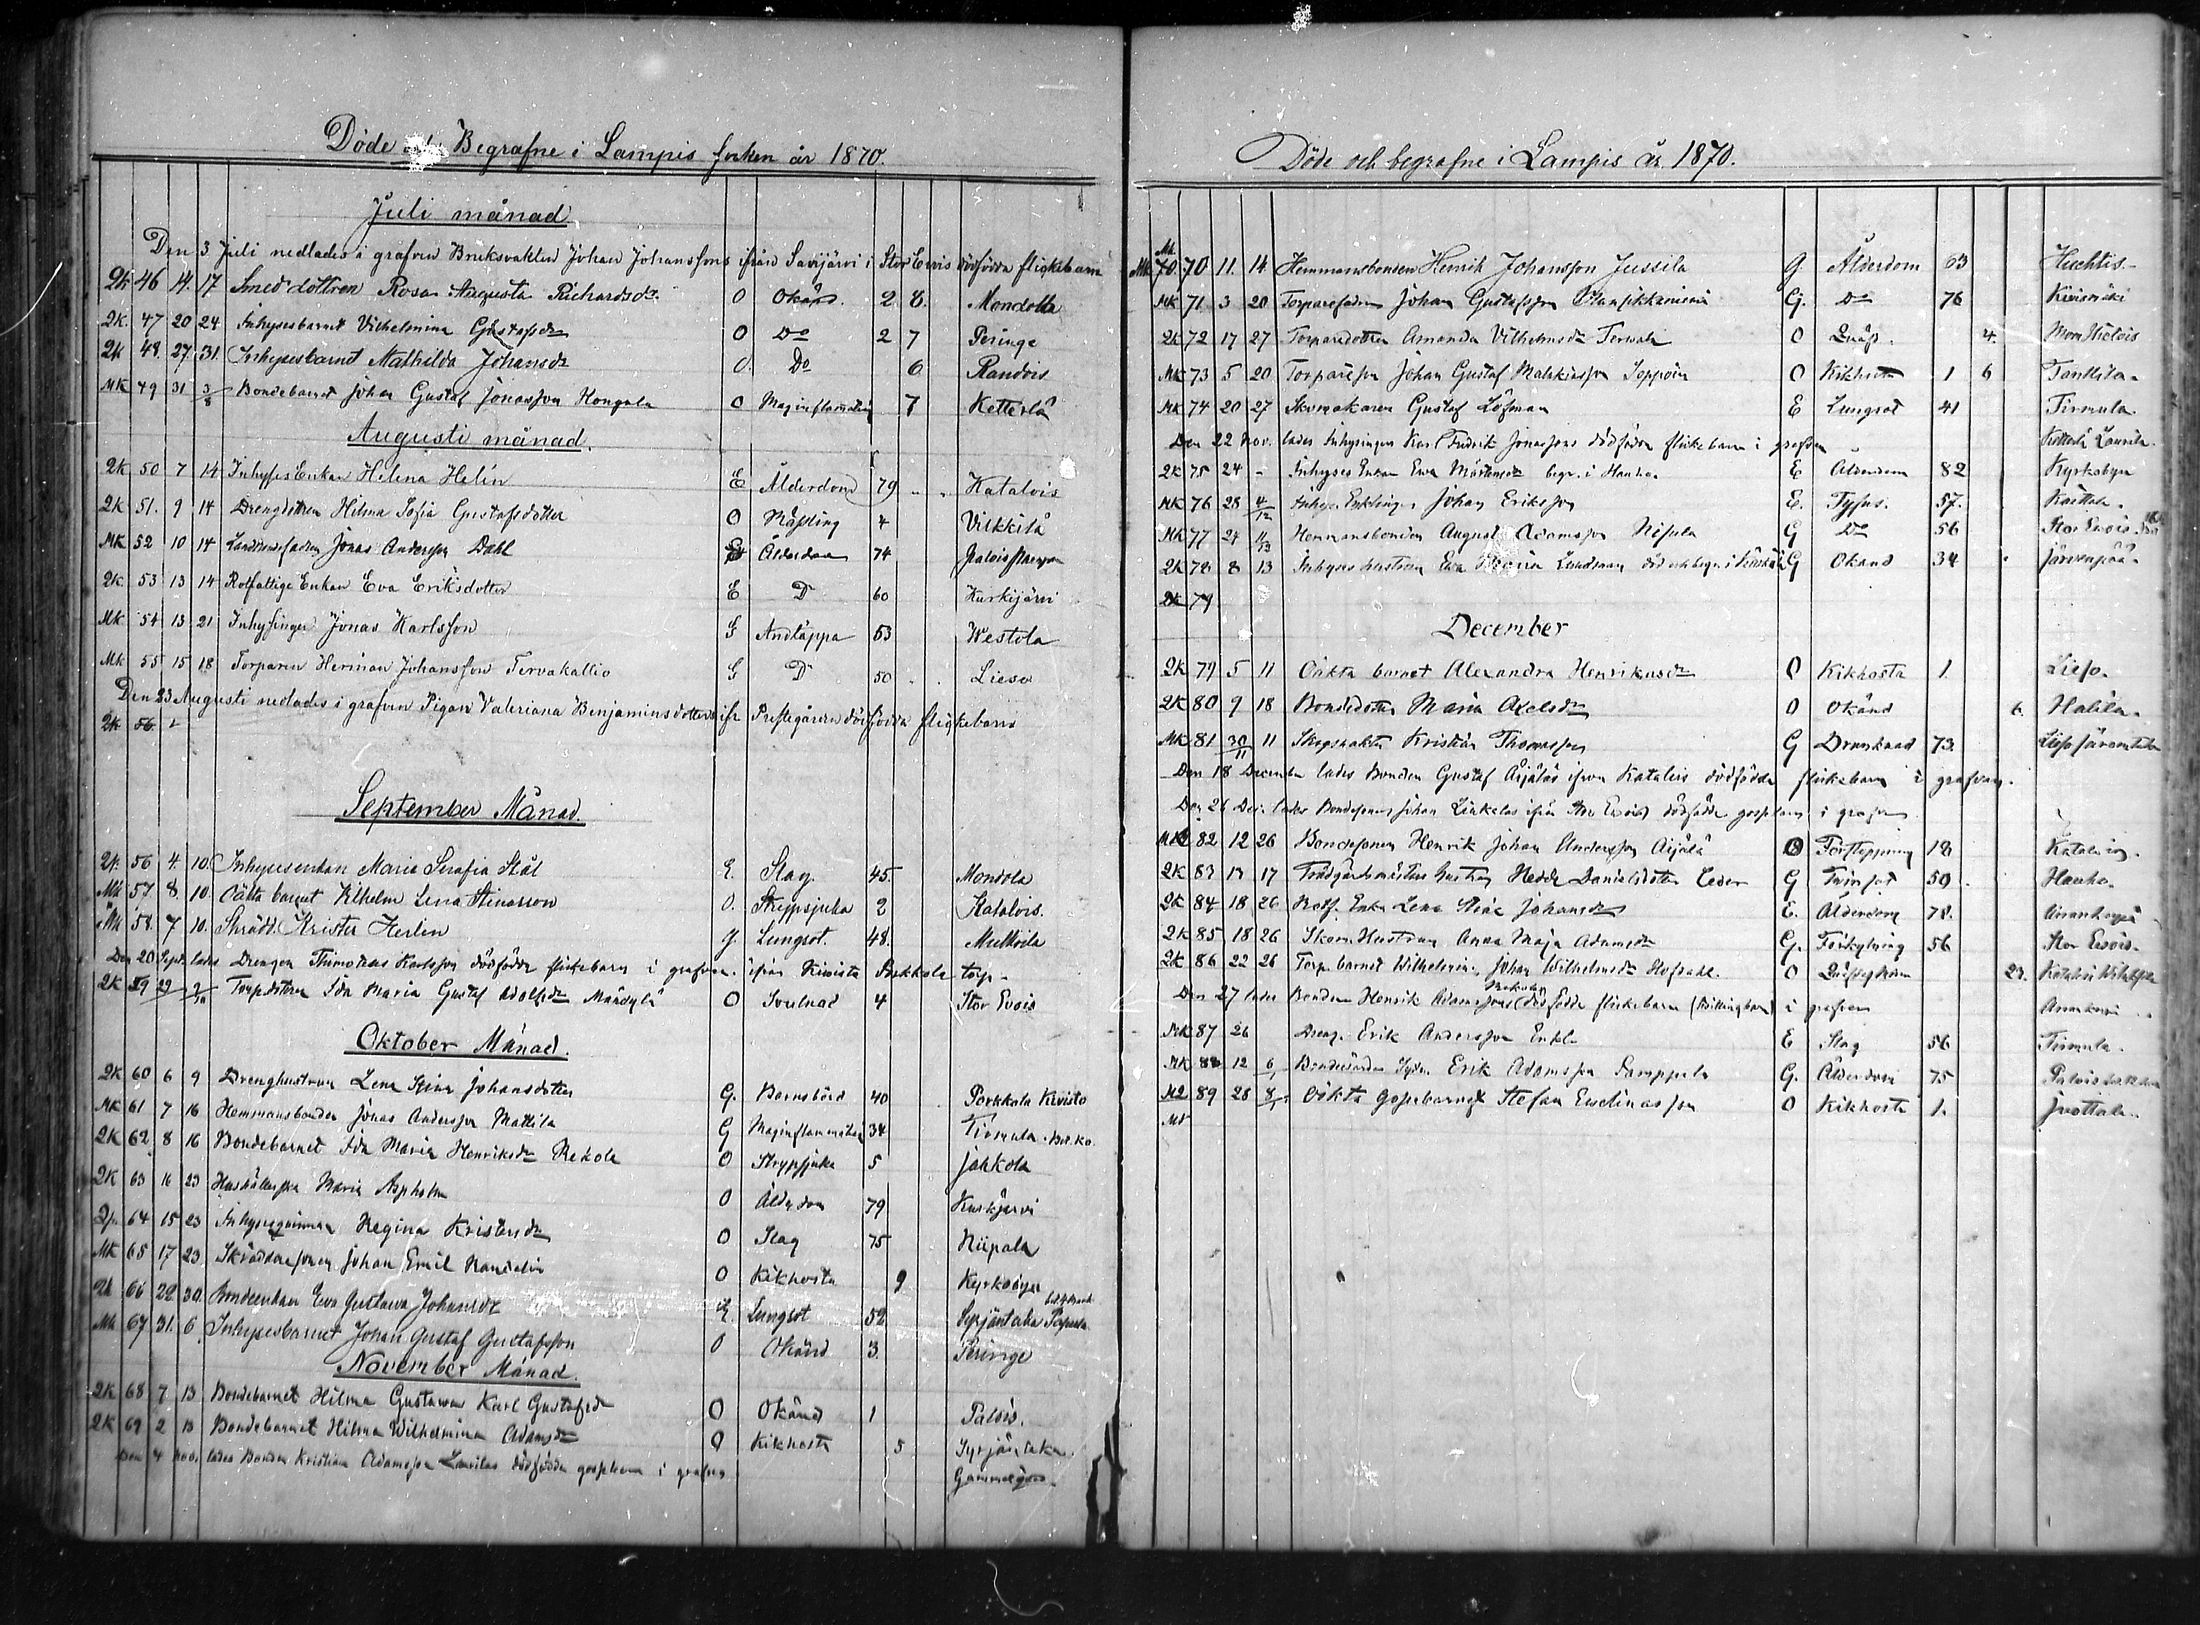 Döde och Begrafne i Lampis socken år 1870.
Juli månad
Den 3 Juli nedlades i grafven Bruksvakten Johan Johanssons ifrån Savijärvi i Stor Evois dödfödda flickebarn
Qk 46 14. 17 Smeddottren Rosa Augusta Richardsdr. O Okänd. 2 8. Mondola
2K. 47 20 24 Inhysesbarnet Vilhelmina Gustafsdr O Do 2 7 Peringe
2k 48. 27 31. Inhysesbarnet Mathilda Johansdr O. Do 6 Randois
MK 49 31 3/8 Bondebarnet Johan Gustaf Jonasson Kongola O Maginflammation 7 Ketterlä
Augusti månad.
2K 50 7 14 Inhyses Enkan Helena Helin E Ålderdom 79 Katalois
2K 51. 9 14 Drengdottren Hilma Sofia Gustafsdotter O Mässling 4 Vilkkilä
MK 52 10 14 Jonas Andersson Dahl Ålderdom 74
2K 53 13 14 Rotfattige Enkan Eva Eriksdotter E D 60 Kurkijärvi
MK 54 13 21 Inhysingen Jonas Karlsson G Andtäppa 53 Westola
MK 55 15 18 Torparen Herman Johansson Tervakallio G D 50 Lieso
Den 23 Augusti nedlades i grafven Pigan Valeriana Benjaminsdotters ifr. Prestegården dödfödda flickebarn
2K 56.
September Månad.
2K 56 4. 10. Inhysesenkan Maria Serafia Stål E. Slag. 45. Mondola
MK 57 8. 10. Oäkta barnet Vilhelm Lena Stinasson O. Strypsjuka 2 Katalois.
MK 58. 7 10. Skrädd. Krister Herlin G. Lungsot. 48. Mulkoila
Den 20 Sept. lades Drengen Thimoteus Karlsson dödfödde flickebarn i grafven. ifrån Kivisto Porkkola torp.
2K 59 29 2/10 Torpdottern Ida Maria Gustaf Adolfsdr Mändylä O Svulnad 4 Stor Evois
Oktober Månad.
2K 60 6 9 Drenghustrun Lena Stina Johansdotter G. Barnsbörd 40 Porkkala Kivisto
MK 61 7 16 Hemmansbonden Jonas Andersson Mattila G Maginflammation 34 Tirmula
2K 62 8 16 Bondebarnet Ida Maria Henriksdr Rekola O Strypsjuka 5 Jahkola
2K 63 16 23 Maria Aspholm O Ålderdom 79 Kurkijärvi
64 15 23 Inhysesqvinnan Regina Kristersdr O Slag 75 Niipala
MK 65 17 23 Skräddaresonen Johan Emil O Kikhosta 9 Kyrkobyn
2K 66 22 30. Bondeenkan Eva Gustava Johansdr E. Lungsot 52 Syrjäntaka
MK 67 31. 6 Inhysesbarnet Johan Gustaf Gustafsson O Okänd 3. Peringe
November Månad.
2K 68 7 13 Bondebarnet Hilma Gustawa Karl Gustafsdr O Okänd 1 Palois.
2K 69 2 13 Bondebarnet Hilma Wilhelmina Adamsdr O Kikhosta 5 Syrjäntaka.
Den 4 nov. lades Bonden Kristian Adamsson Laurilas dödfödda gossebarn i grafven
Döde och begrafne i Lampis år 1870.
Mk. 70 70 11. 14 Hemmansbonden Henrik Johansson Jussila G. Ålderdom 63 Huchtis
MK 71 3 20 Torparefadren Johan Gustafsson G. Do 76 Kivismäki
2K 72 17 27 Torparedottren Amanda Vilhelmsdr Tervala O 4.
MK 73 5 20 Torpareson Johan Gustaf O Kikhosta 1 6 Tanttila
MK 74 20 27 Skomakaren Gustaf Löfman E Lungsot 41 Tirmula
Den 22 Nov. lades Inhysingen Karl Fredrik Jonassons dödfödda flickebarn i grafven
2K 75 24 - Inhyses Enkan Ewa Mårtensdr begr. i Hauho E Ålderdom 82 Kyrkobyn
MK 76 28 4/12 Inhys. Enklingen Johan Eriksson E. Tyfus. 57.
MK 77 24 11/12 Hemmansbonden August Adamsson G Do 56 Stor Evois
2K 78 8 13 Inhyses hustrun Ewa Maria Lundman G Okänd 34 Järvenpää
2K 79
December
2K 79 5 11 Oäkta barnet Alexandra Henrikasdr O Kikhosta 1. Lieso.
2K 80 9 18 Bondedotter Maria Axelsdr O Okänd 6. Halila.
MK 81 30/11 11 Skogsvakten Kristian Thomasson G Drunknad 73.
Den 18 December lades Bonden Gustaf Äijäläs ifrån Katalois dödfödda flickebarn i grafven.
Den 26 Dec. lades Bondesonen Johan ifrån Stor Evois dödfödda gossebarn i grafven
MK 82 12 26 Bondesonen Henrik Johan Andersson Äijälä O Förstoppning 18 Katalois.
2K 83 13 17 Trädgårdsmästare hustrun Hedda Danielsdotter Ceder G 50 Hauho.
2K 84 18 26 Rotf. Enkan Lena Stina Johansdr E. Ålderdom 78.
2K 85 18 26 Skom. Hustrun Anna Maja Adamsdr G. Förkylning 56 Stor Evois.
2K 86 22 26 Torp. barnet Wilhelmina Johan Wilhelmsdr O 23.
Den 27 lades Bonden Henrik Adamssons dödfödda flickebarn (tvillingbarn) i grafven
MK 87 26 Dreng. Erik Andersson Enkl. E Slag 56 Tirmula.
MK 88 12 6/1 Erik Adamsson Samppala G. Ålderdom 75
M2 89 28 8/1 Oäkta gossebarnet Stefan Evelinasson O Kikhosta 1. Juottola.